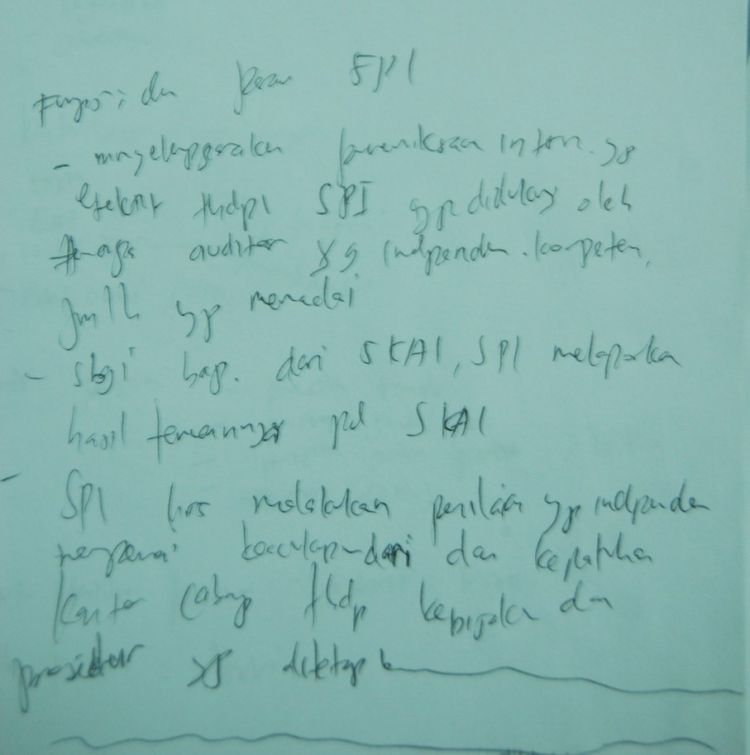 Fungsi dan peran SPI
- menyelenggarakan pemeriksaan intern. yg
efektif thdp SPI yg didukung oleh
tenaga auditor yg independen. kompeten,
jmlh yg memadai
- sbgi bag. dari SKAI, SPI melaporkan
hasil temuannya pd SKAI
- SPI hrs melakukan penilaian yg independen
mengenai kecukupan dari dan kepatuhan
kantor cabang thdp kebijakan dan
prosedur yg ditetap